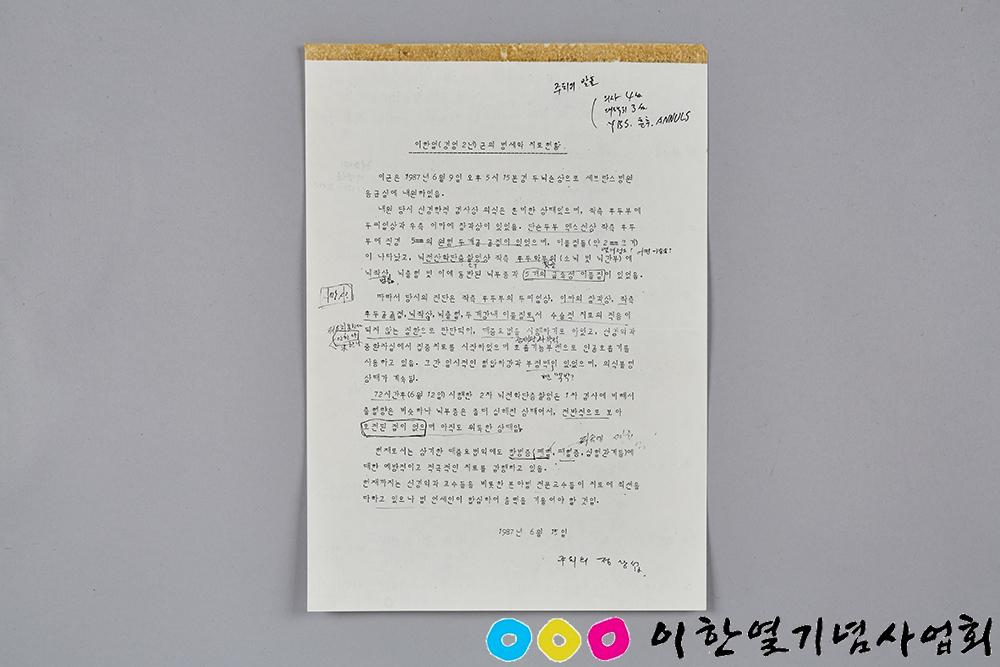 주치의 말씀
의사 4명
3명
YBS. 춘추. ANNULS
이한열(경영 2년)군의 병세와 치료현황
이군은 1987년 6월 9일 오후 5시 15분경 두뇌손상으로 세브란스병원
응급실에 내원하였음.
내원 당시 신경학적 검사상 의식은 혼미한 상태였으며, 좌측 후두부에
두피열상과 우측 이마에 찰과상이 있었음. 단순두부 엑스선상 좌측 후두
부에 직경 5mm의 원형 두개골 골절이 있었으며, 이물질들(약 2mm 크기)
이 나타났고, 뇌전산화단층촬영상 좌측 후두와부위 (소뇌 및 뇌간부)에
뇌좌상, 뇌출혈 및 이에 동반된 뇌부종과 5개의 금속성 이물질이 있었음.
따라서 당시의 진단은 좌측 후두부의 두피열상, 이마의 찰과상, 좌측
후두골골절, 뇌좌상, 뇌출혈, 두개강내 이물질로서 수술적 치료의 적응이
되지 않는 질환으로 판단되어, 대증요법을 시행하기로 하였고, 신경외과
중환자실에서 집중치료를 시작하였으며 호흡기능부전으로 인공호흡기를
사용하고 있음. 그간 일시적인 혈압하강과 부정맥이 있었으며, 의식불명
상태가 계속됨.
72시간후(6월 12일) 시행한 2차 뇌전학단층촬영은 1차 검사에 비해서
출혈량은 비슷하나 뇌부종은 좀더 심해진 상태여서, 전반적으로 보아
호전된 점이 없으며 아직도 위독한 상태임.
현재로서는 상기한 대증요법외에도 합병증(폐렴, 패혈증, 심혈관계등)에
대한 예방적이고 적극적인 치료를 강행하고 있음.
현재까지는 신경외과 교수들을 비롯한 본아병 전문교수들이 치료에 최선을
다하고 있으나 범 연세인이 합심하여 총력을 기울여야 할 것임.
1987년 6월 15일
주치의 정상섭
이한열기념사업회